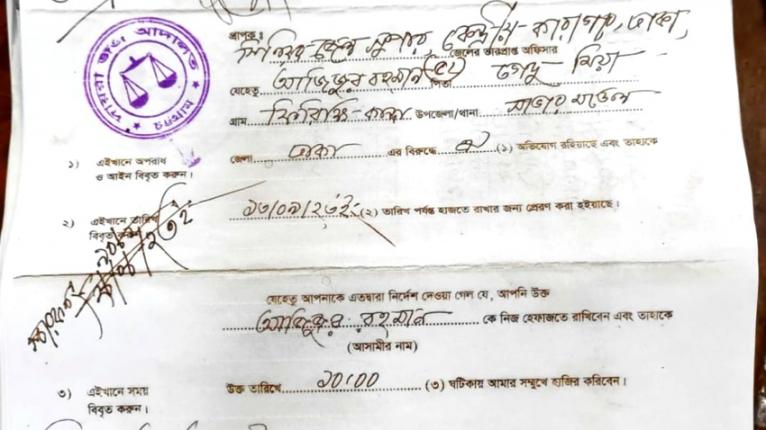 প্রাপক:
সিনিয়র জেল সুপার, কেন্দ্রীয় কারাগার, ঢাকা,
জেলের ভারপ্রাপ্ত অফিসার
যেহেতু আজিজুর রহমান পিতা মিয়া
গ্রাম উপজেলা/থানা সাভার মডেল
জেলা ঢাকা এর বিরুদ্ধে (১) অভিযোগ রহিয়াছে এবং তাহাকে
১) এইখানে অপরাধ
ও আইন বিবৃত করুন।
(২) তারিখ পর্যন্ত হাজতে রাখার জন্য প্রেরণ করা হইয়াছে।
২) এইখানে তারিখ
বিবৃত করুন
যেহেতু আপনাকে এতদ্বারা নির্দেশ দেওয়া গেল যে, আপনি উক্ত
আজিজুর রহমান কে নিজ হেফাজতে রাখিবেন এবং তাহাকে
(আসামীর নাম)
৩) এইখানে সময়
বিবৃত করুন।
উক্ত তারিখে ১০:০০ (৩) ঘটিকায় আমার সম্মুখে হাজির করিবেন।